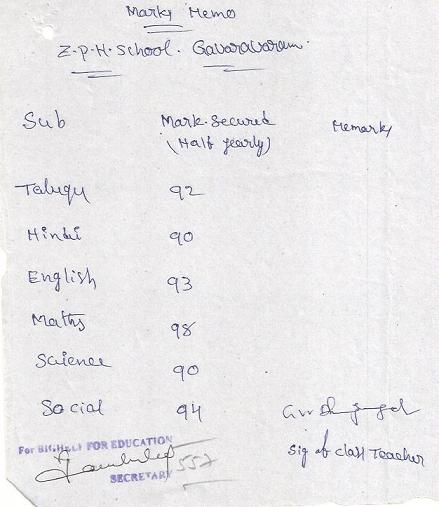 Marks Memo
Z.P.H. School. Gavaravaram.
Sub Mark. Secured Remarks
(Half yearly)
Talugu 92
Hindi 90
English 93
Maths 98
Science 90
Social 94
For BIGHELP FOR EDUCATION
SECRETARY 557
Sig of class Teacher